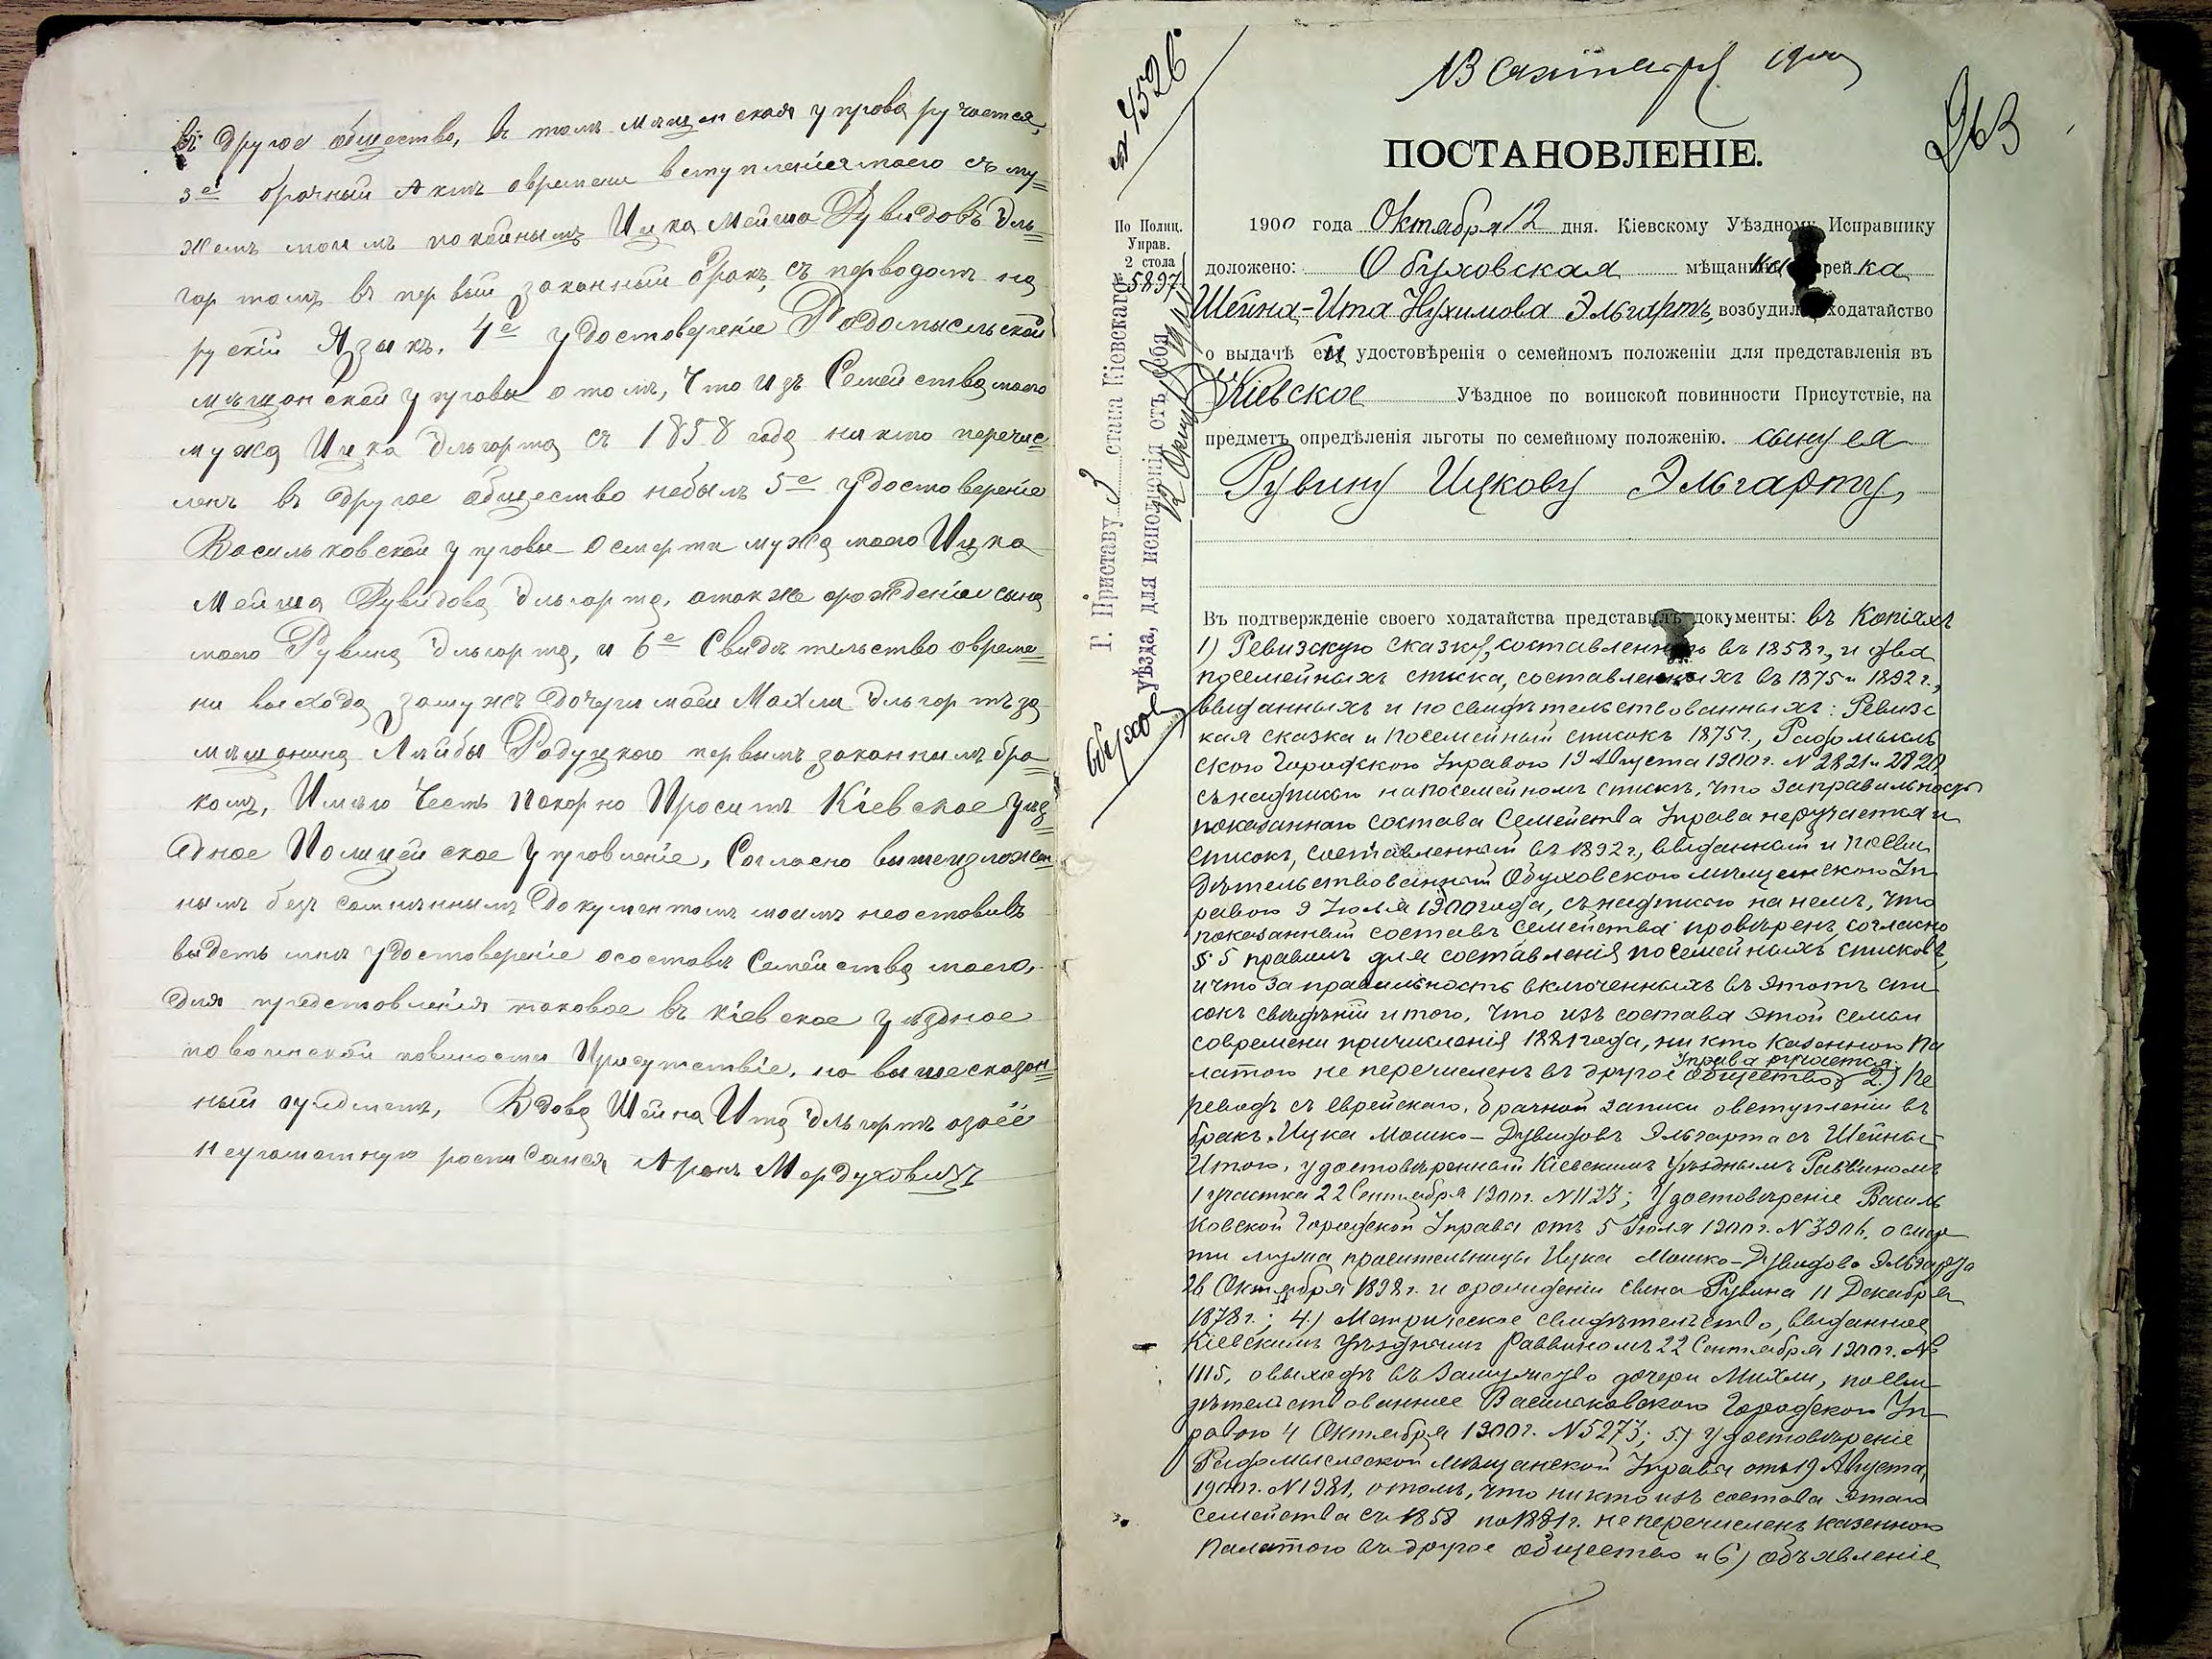 въ другое общество, въ томъ мѣщенская управа ручается,
3е брачный Актъ овремени вступленіямоего съ му=
жемъ моимъ покойнымъ Ицка Мейша Дувидовъ Эль=
гортомъ въ первый законный бракъ, съ переводомъ на
рускій Языкъ. 4е удостовереніе Радомысльской
мѣщанской управы отомъ, что изъ Семействамоего
мужа Ицка Эльгорта съ 1858 года никто перечис
ленъ въ другое общество небылъ 5е удостовереніе
Васильковской управы Осмерти мужа моего Ицка
Мейша Дувидова Эльгорта, атакже орожденіи сына
моего Рувина Эльгорта, и 6е Свидѣтельство овреме=
ни выхода замужъ дочери моей Махли Эльгортъ за
мѣщанина Лейбы Радуцкого первымъ законнимъ бра=
комъ, Имѣю Честь Покорно Просить Кіевское Уѣз=
дное Полицейское Управленіе, Согласно вышеизложен
нымъ безсомнѣннымъ документомъ моимъ неоставивъ
выдать мнѣ удостовереніе осоставѣ Семейства моего,
для представленія таковое въ кіевское уѣздное
повоинской повиности Присутствіе, на вышесказан=
ный предметъ, Вдова Шейна Ита Эльгортъ азаеё
неграмотную росписался Аронъ Мордуховичъ
13 1900
263
4526
ПОСТАНОВЛЕНІЕ.
1900 года Октября 12 дня. Кіевскому Уѣздному Исправнику
доложено: Обуховская мѣщанка рейка
Шейна-Ита Нухимова Эльгартъ, возбудил ходатайство
о выдачѣ ей удостовѣренія о семейномъ положеніи для представленія въ
Кіевское Уѣздное по воинской повинности Присутствіе, на
предметъ опредѣленія льготы по семейному положенію. сыну ея
Рувину Ицкову Эльгарту,
По Полиц.
Управ.
2 стола
№ 5897
Г. Приставу 3 стана Кіевскаго
уѣзда, для исполненія отъ себя
Обухов
Въ подтвержденіе своего ходатайства представилъ документы: въ копіяхъ
1) Ревизскую сказку, составленную въ 1858 г., и два
посемейныхъ списка, составленныхъ въ 1875 и 1892 г.,
выданныхъ и посвидѣтельствованныхъ: Ревизс
кая сказка и посемейный списокъ 1875 г., Радомысль
скою Городскою Управою 19 Августа 1900 г. N 2821 и 2820
съ надписью на посемейномъ спискѣ, что за правильность
показаннаго состава Семейства Управа неручается и
списокъ, составленный въ 1892 г., выданный и посви
дѣтельствованный Обуховскою мѣщанскою Уп
равою 9 Іюля 1900 года, съ надписью на немъ, что
показанный составъ семейства провѣренъ согласно
§ 5 правилъ для составленія посемейныхъ списковъ,
и что за правильность включенныхъ въ этотъ спи
сокъ свѣдѣній и того, что изъ состава этой семьи
современи причисленія 1881 года, никто казенною Па
Управа ручается;
латою не перечисленъ въ другое общество, 2) Пе
реводъ съ еврейскаго, брачной записи овступленіи въ
бракъ Ицка Мошко-Дувидовъ Эльгарта съ Шейна-
Итою, удостовѣренный Кіевскимъ Уѣзднымъ Раввиномъ
1 участка 22 Сентября 1900 г. N 1123; Удостовѣреніе Василь
ковской Городской Управы отъ 5 Іюля 1900 г. N 3906, о смер
ти мужа просительницы Ицка Мошко-Дувидова Эльгарта
26 Октября 1898 г. и орожденіи сына Рувина 11 Декабря
1878 г.; 4) Метрическое свидѣтельство, выданное
Кіевскимъ Уѣзднымъ Раввиномъ 22 Сентября 1900 г. №
1115, овыходѣ въ замужество дочери Михли, посви
дѣтельствованное Васильковскою Городскою Уп
равою 4 Октября 1900 г. N 5273; 5) удостовѣреніе
Радомысльской мѣщанской Управы отъ 19 Августа
1900 г. N 1981, отомъ, что никто изъ состава этого
семейства съ 1858 по 1881 г. не перечисленъ казенною
Палатою въ другое общество и 6) объявленіе